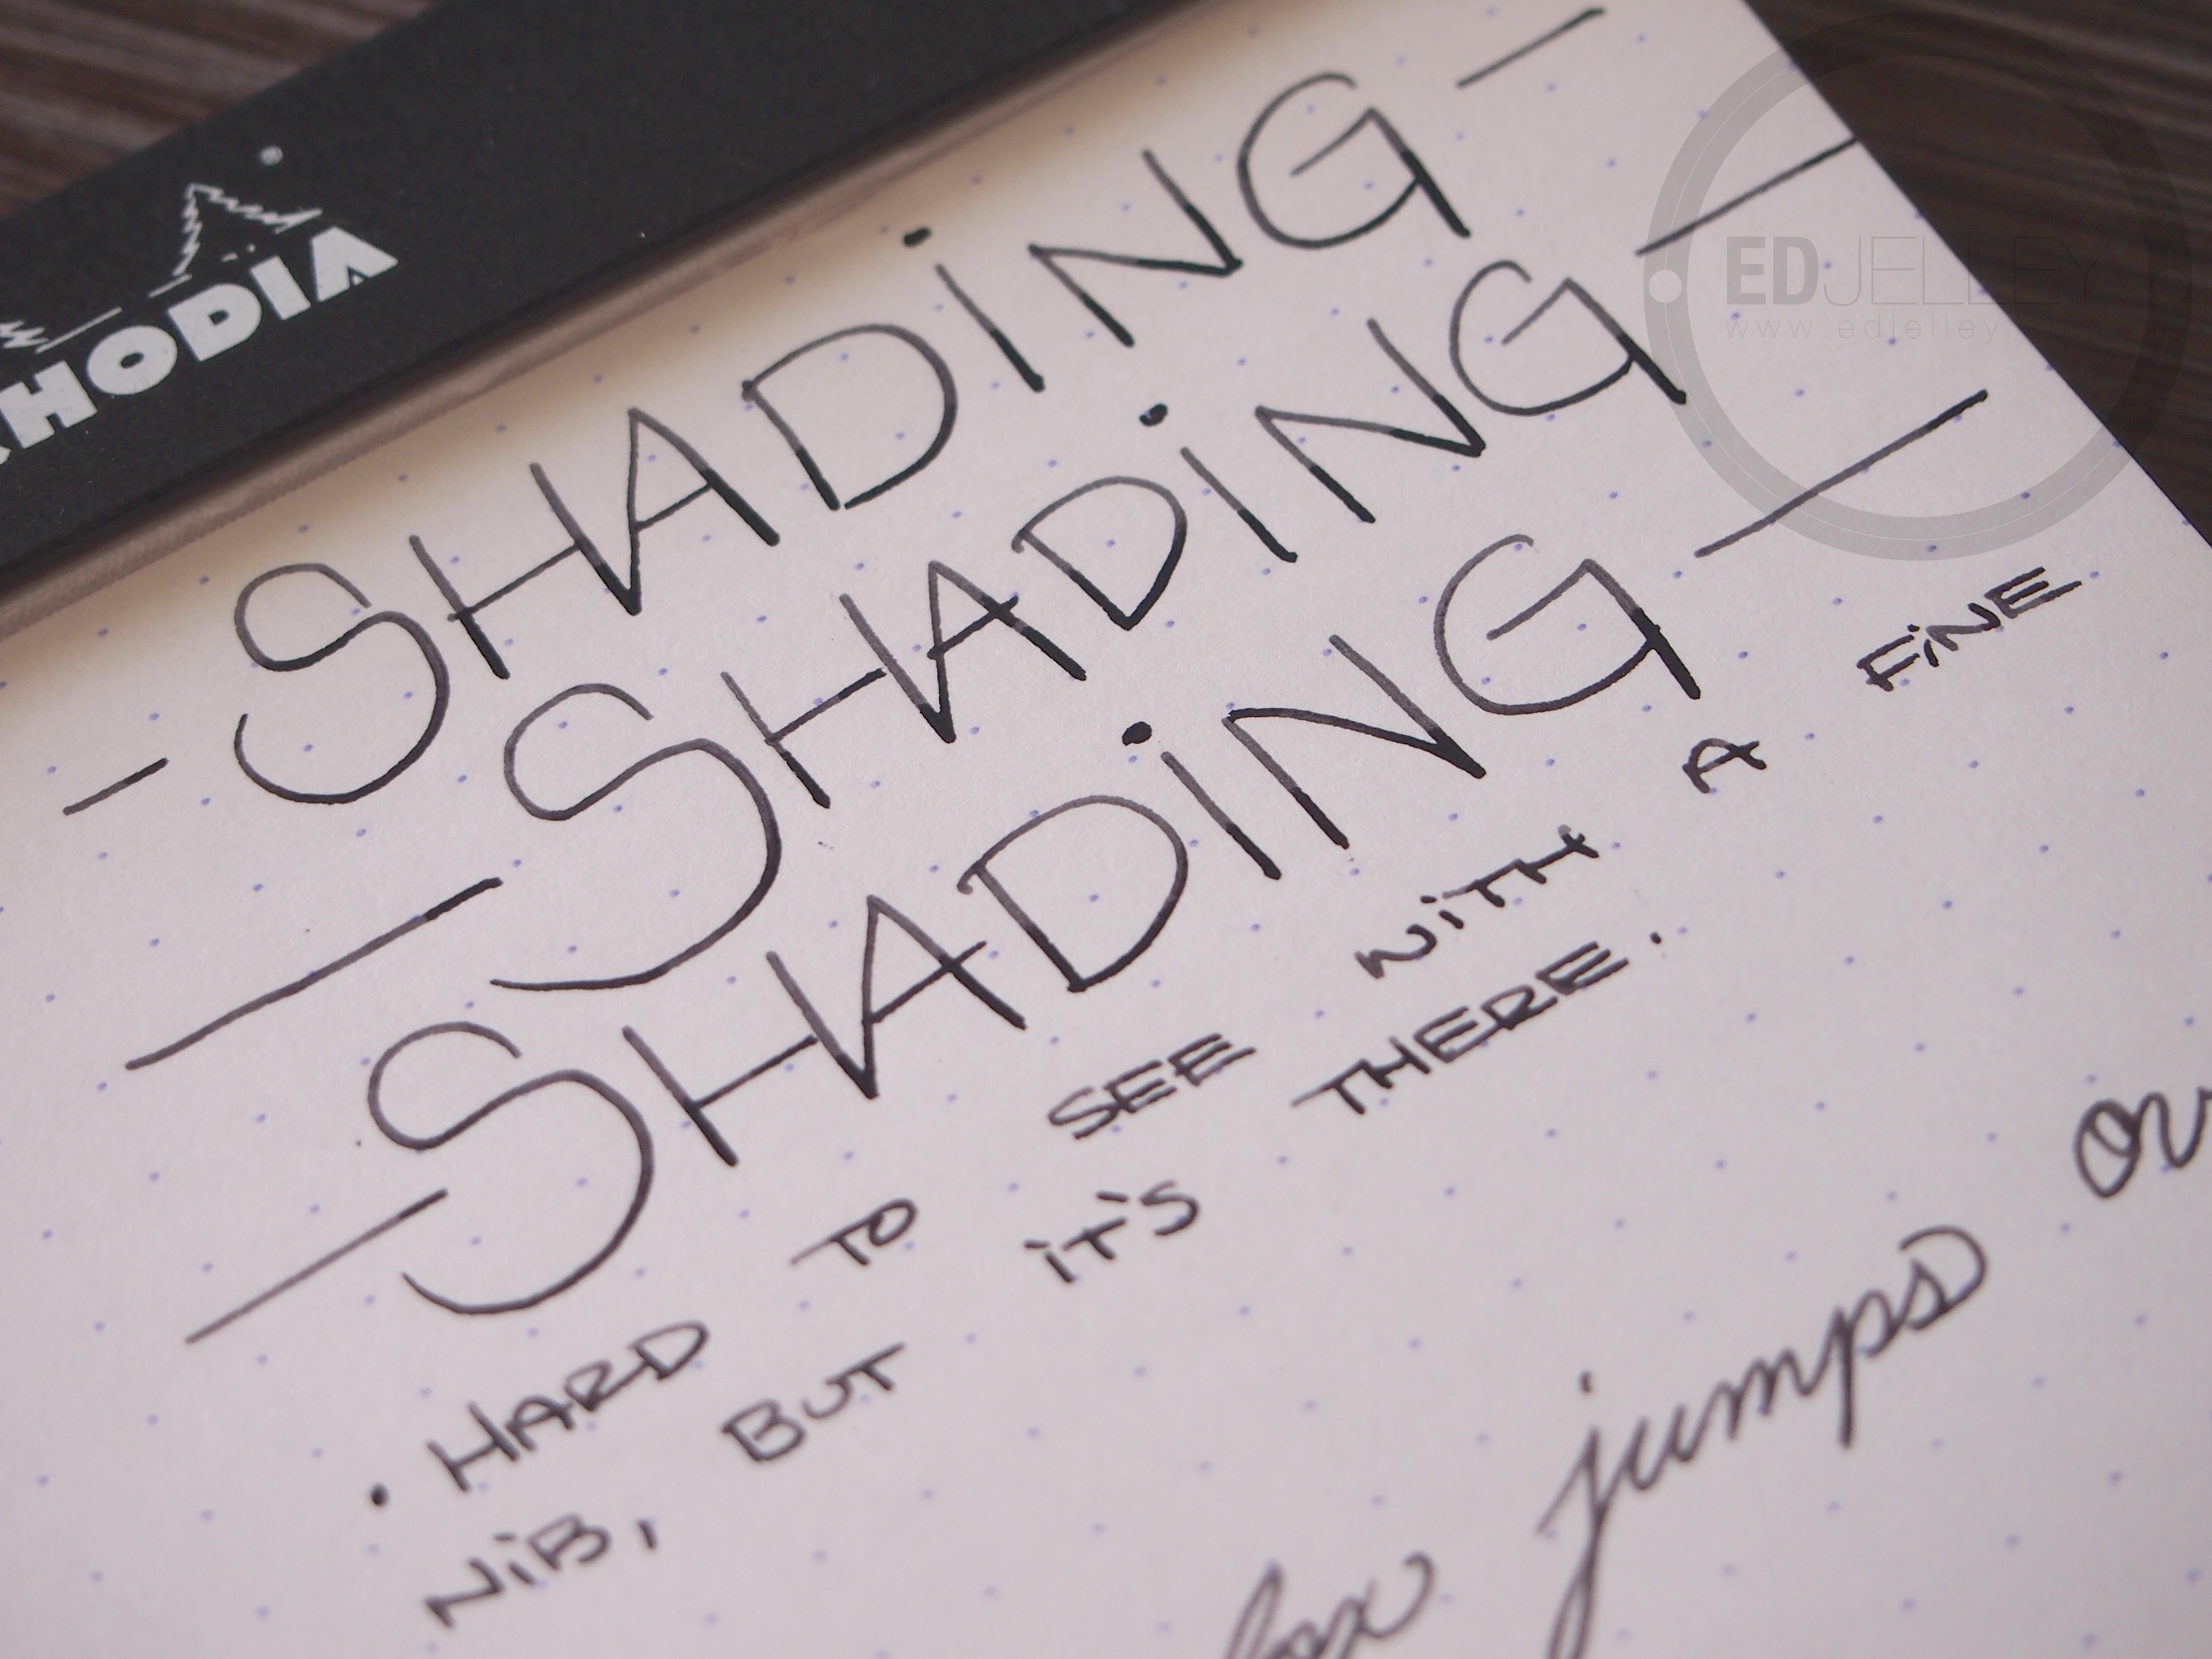 RHODIA
- SHADING -
- SHADING -
- SHADING -
· HARD TO SEE WITH A FINE
NIB, BUT IT'S THERE.
fox jumps ov
EDJELLEY
www.edjelley.